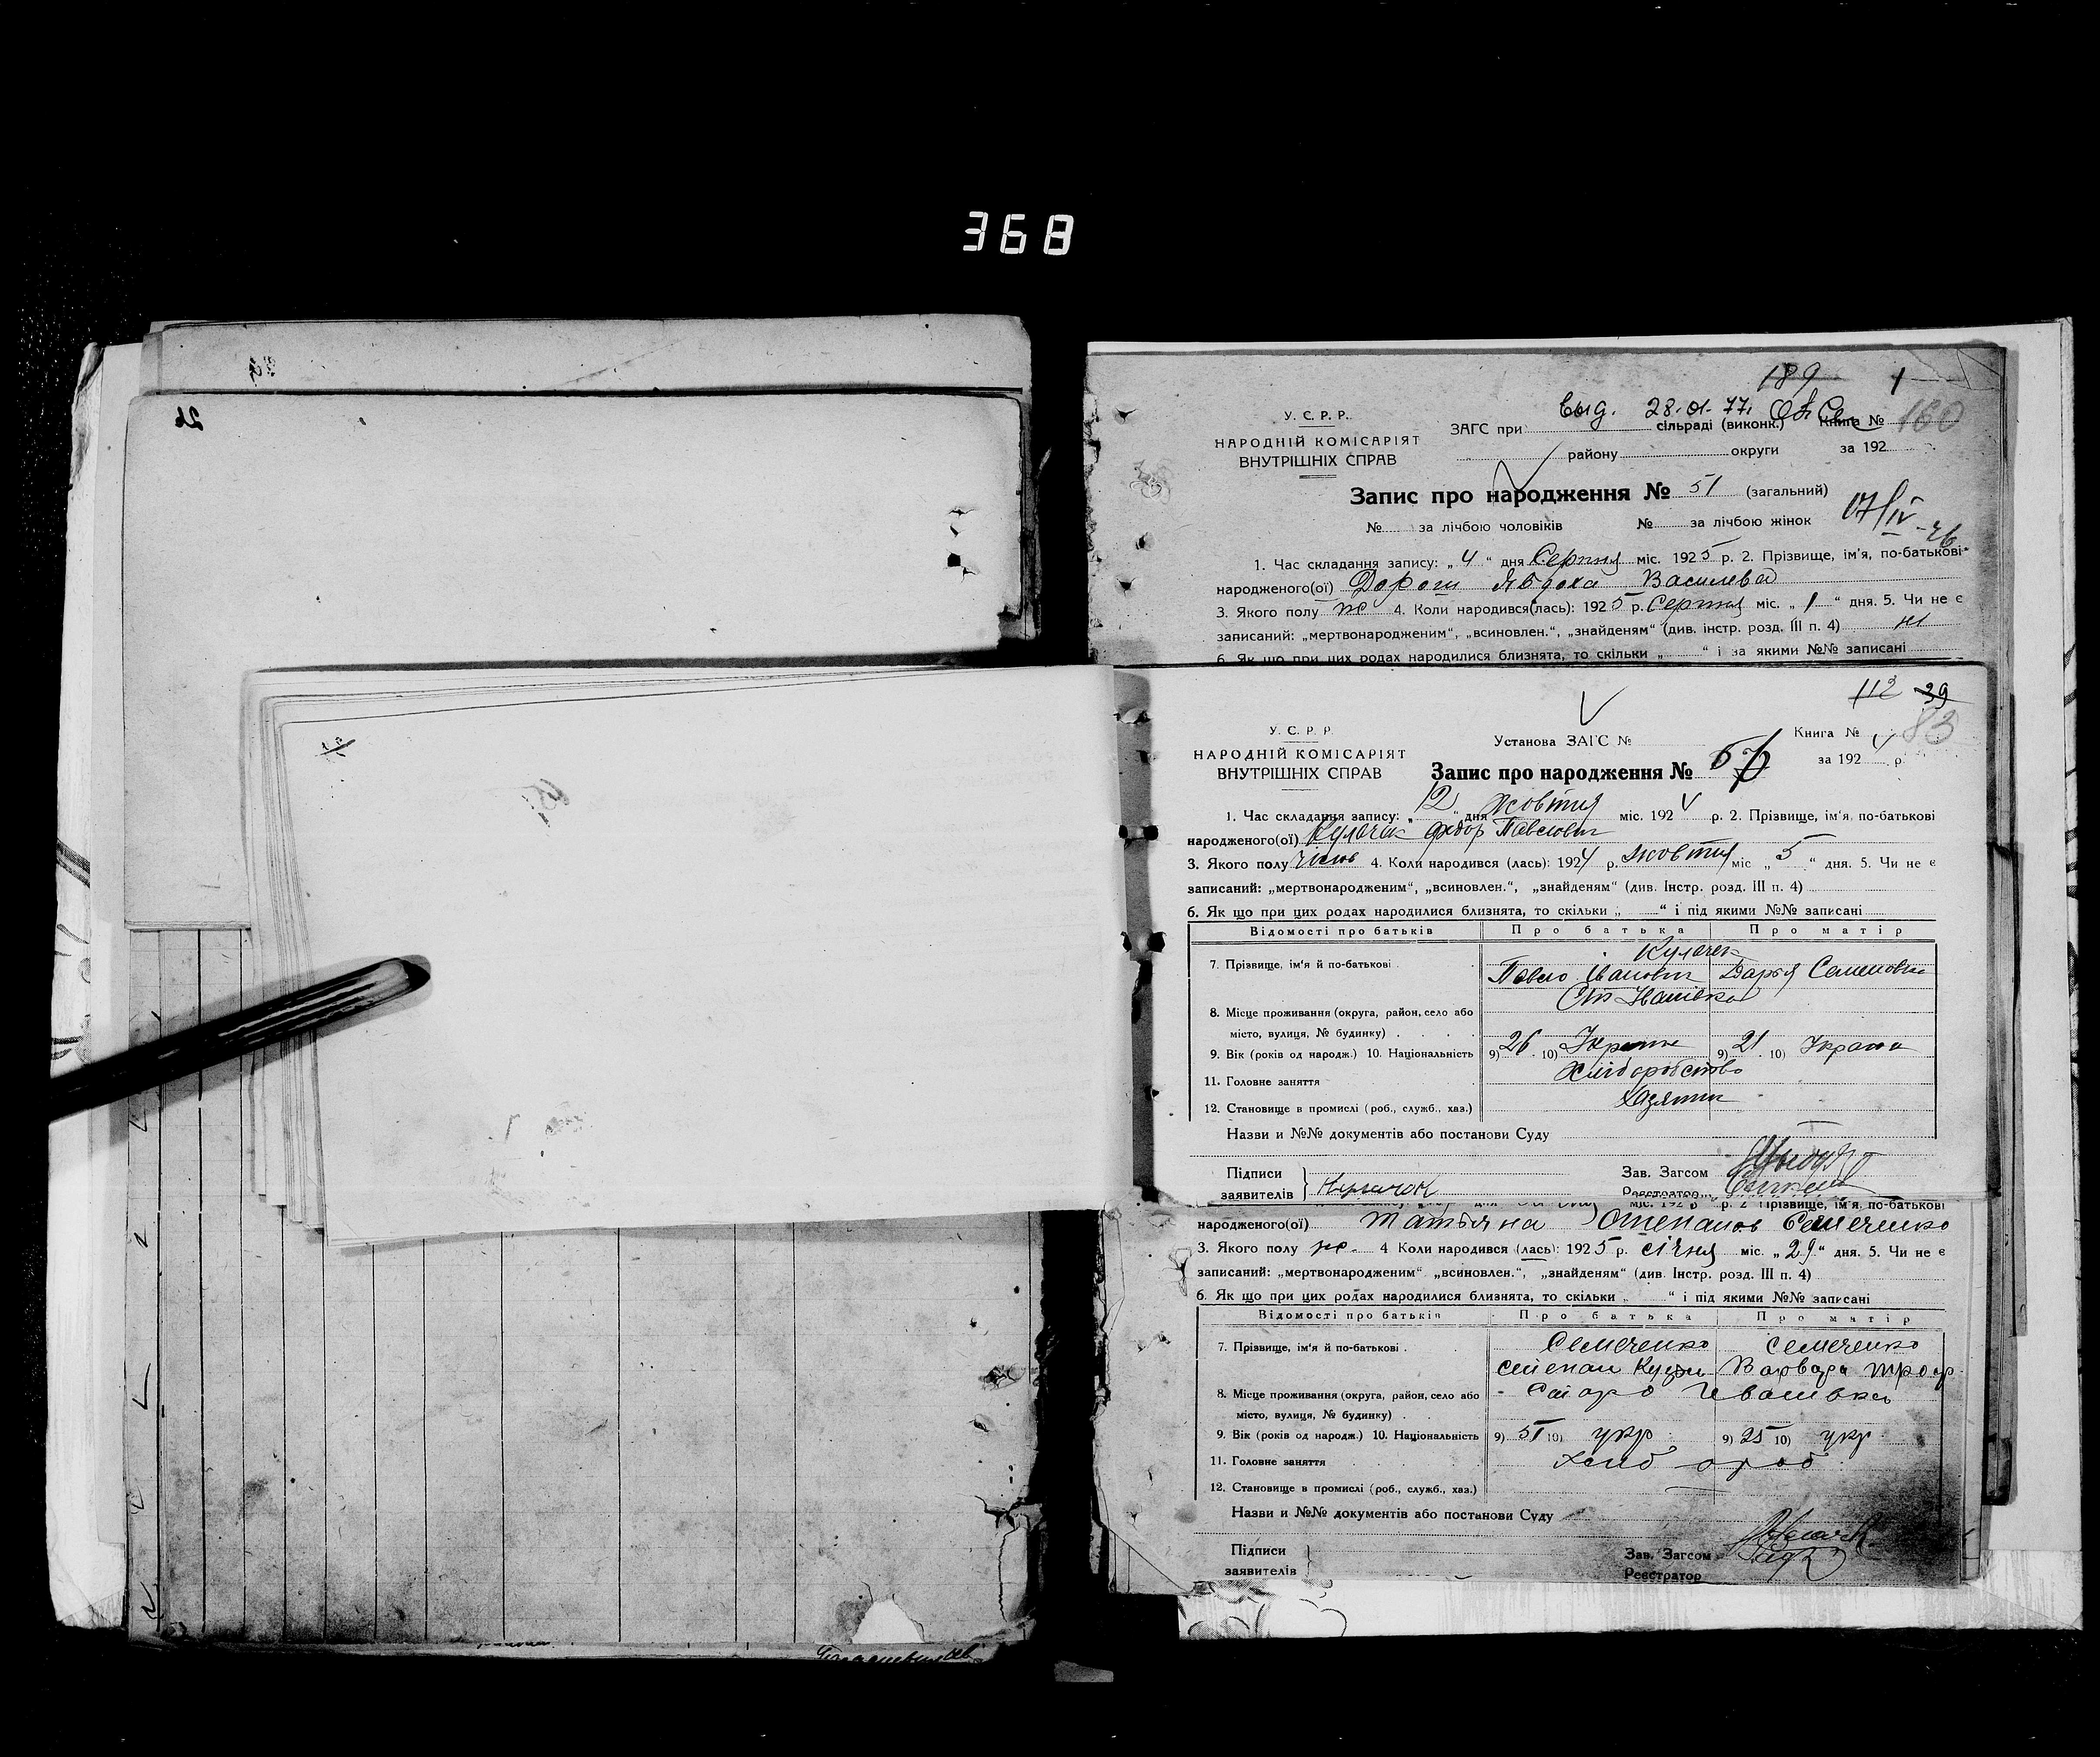 368
26
189 1
выд. 28.01.77.
У. С. Р. Р.
НАРОДНІЙ КОМІСАРІЯТ
ВНУТРІШНІХ СПРАВ
ЗАГС при сільраді (виконк.) Книга № 160
району округи за 192
Запис про народження № 51 (загальний)
№ за лічбою чоловіків № за лічбою жінок
17/IV-26
1. Час складання запису: „ 4 “ дня Серпня міс. 1925 р. 2. Прізвище, ім'я, по-батькові
народженого(ої) Дорош Явдоха Василева
3. Якого полу ж 4. Коли народився(лась): 1925 р. Серпня міс. „ 1 “ дня. 5. Чи не є
записаний: „мертвонародженим“, „всиновлен.“, „знайденям“ (див. інстр. розд. III п. 4) ні
6. Як що при цих родах народилися близнята, то скільки „ “ і за якими №№ записані
112 39
83
У. С. Р. Р.
НАРОДНІЙ КОМІСАРІЯТ
ВНУТРІШНІХ СПРАВ
Установа ЗАГС № Книга №
Запис про народження № за 192 р.
1. Час складання запису: „ 12 “ дня жовтня міс. 192 р. 2. Прізвище, ім'я, по-батькові
народженого(ої) Кулачек Федор Павлович
3. Якого полу 4. Коли народився (лась): 1924 р. жовтня міс „ 5 “ дня. 5. Чи не є
записаний: „мертвонародженим“, „всиновлен.“, „знайденям“ (див. Інстр. розд. III п. 4)
6. Як що при цих родах народилися близнята, то скільки „ “ і під якими №№ записані
Відомості про батьків Про батька Про матір
Кулачек
7. Прізвище, ім'я й по-батькові Павло Іванович Дарья Семеновна
Ст Іванівка
8. Місце проживання (округа, район, село або
місто, вулиця, № будинку)
9. Вік (років од народж.) 10. Національність 9) 26 10) 9) 21 10)
11. Головне заняття Хліборобство
12. Становище в промислі (роб., служб., хаз.) Хазяин
Назви и №№ документів або постанови Суду
Підписи
заявителів Кулачок
Зав. Загсом
Реєстратор
міс. 192 р. 2 Прізвище, ім'я, по-батькові
народженого(ої) Татьяна Степанов Семеченко
3. Якого полу ж. 4 Коли народився (лась): 1925 р. січня міс. „ 29 “ дня. 5. Чи не є
записаний: „мертвонародженим“ „всиновлен.“, „знайденям“ (див. Інстр. розд. III п. 4)
6. Як що при цих родах народилися близнята, то скільки „ “ і під якими №№ записані
Відомості про батьків Про батька Про матір
7. Прізвище, ім'я й по-батькові Семеченко Семеченко
Степан Кузьм Варвара Троф
8. Місце проживання (округа, район, село або Старо Івановка
місто, вулиця, № будинку)
9. Вік (років од народж.) 10. Національність 9) 51 10) укр 9) 25 10) укр
11. Головне заняття Хліб ороб
12. Становище в промислі (роб., служб., хаз.)
Назви и №№ документів або постанови Суду
Підписи
заявителів
Зав. Загсом
Реєстратор